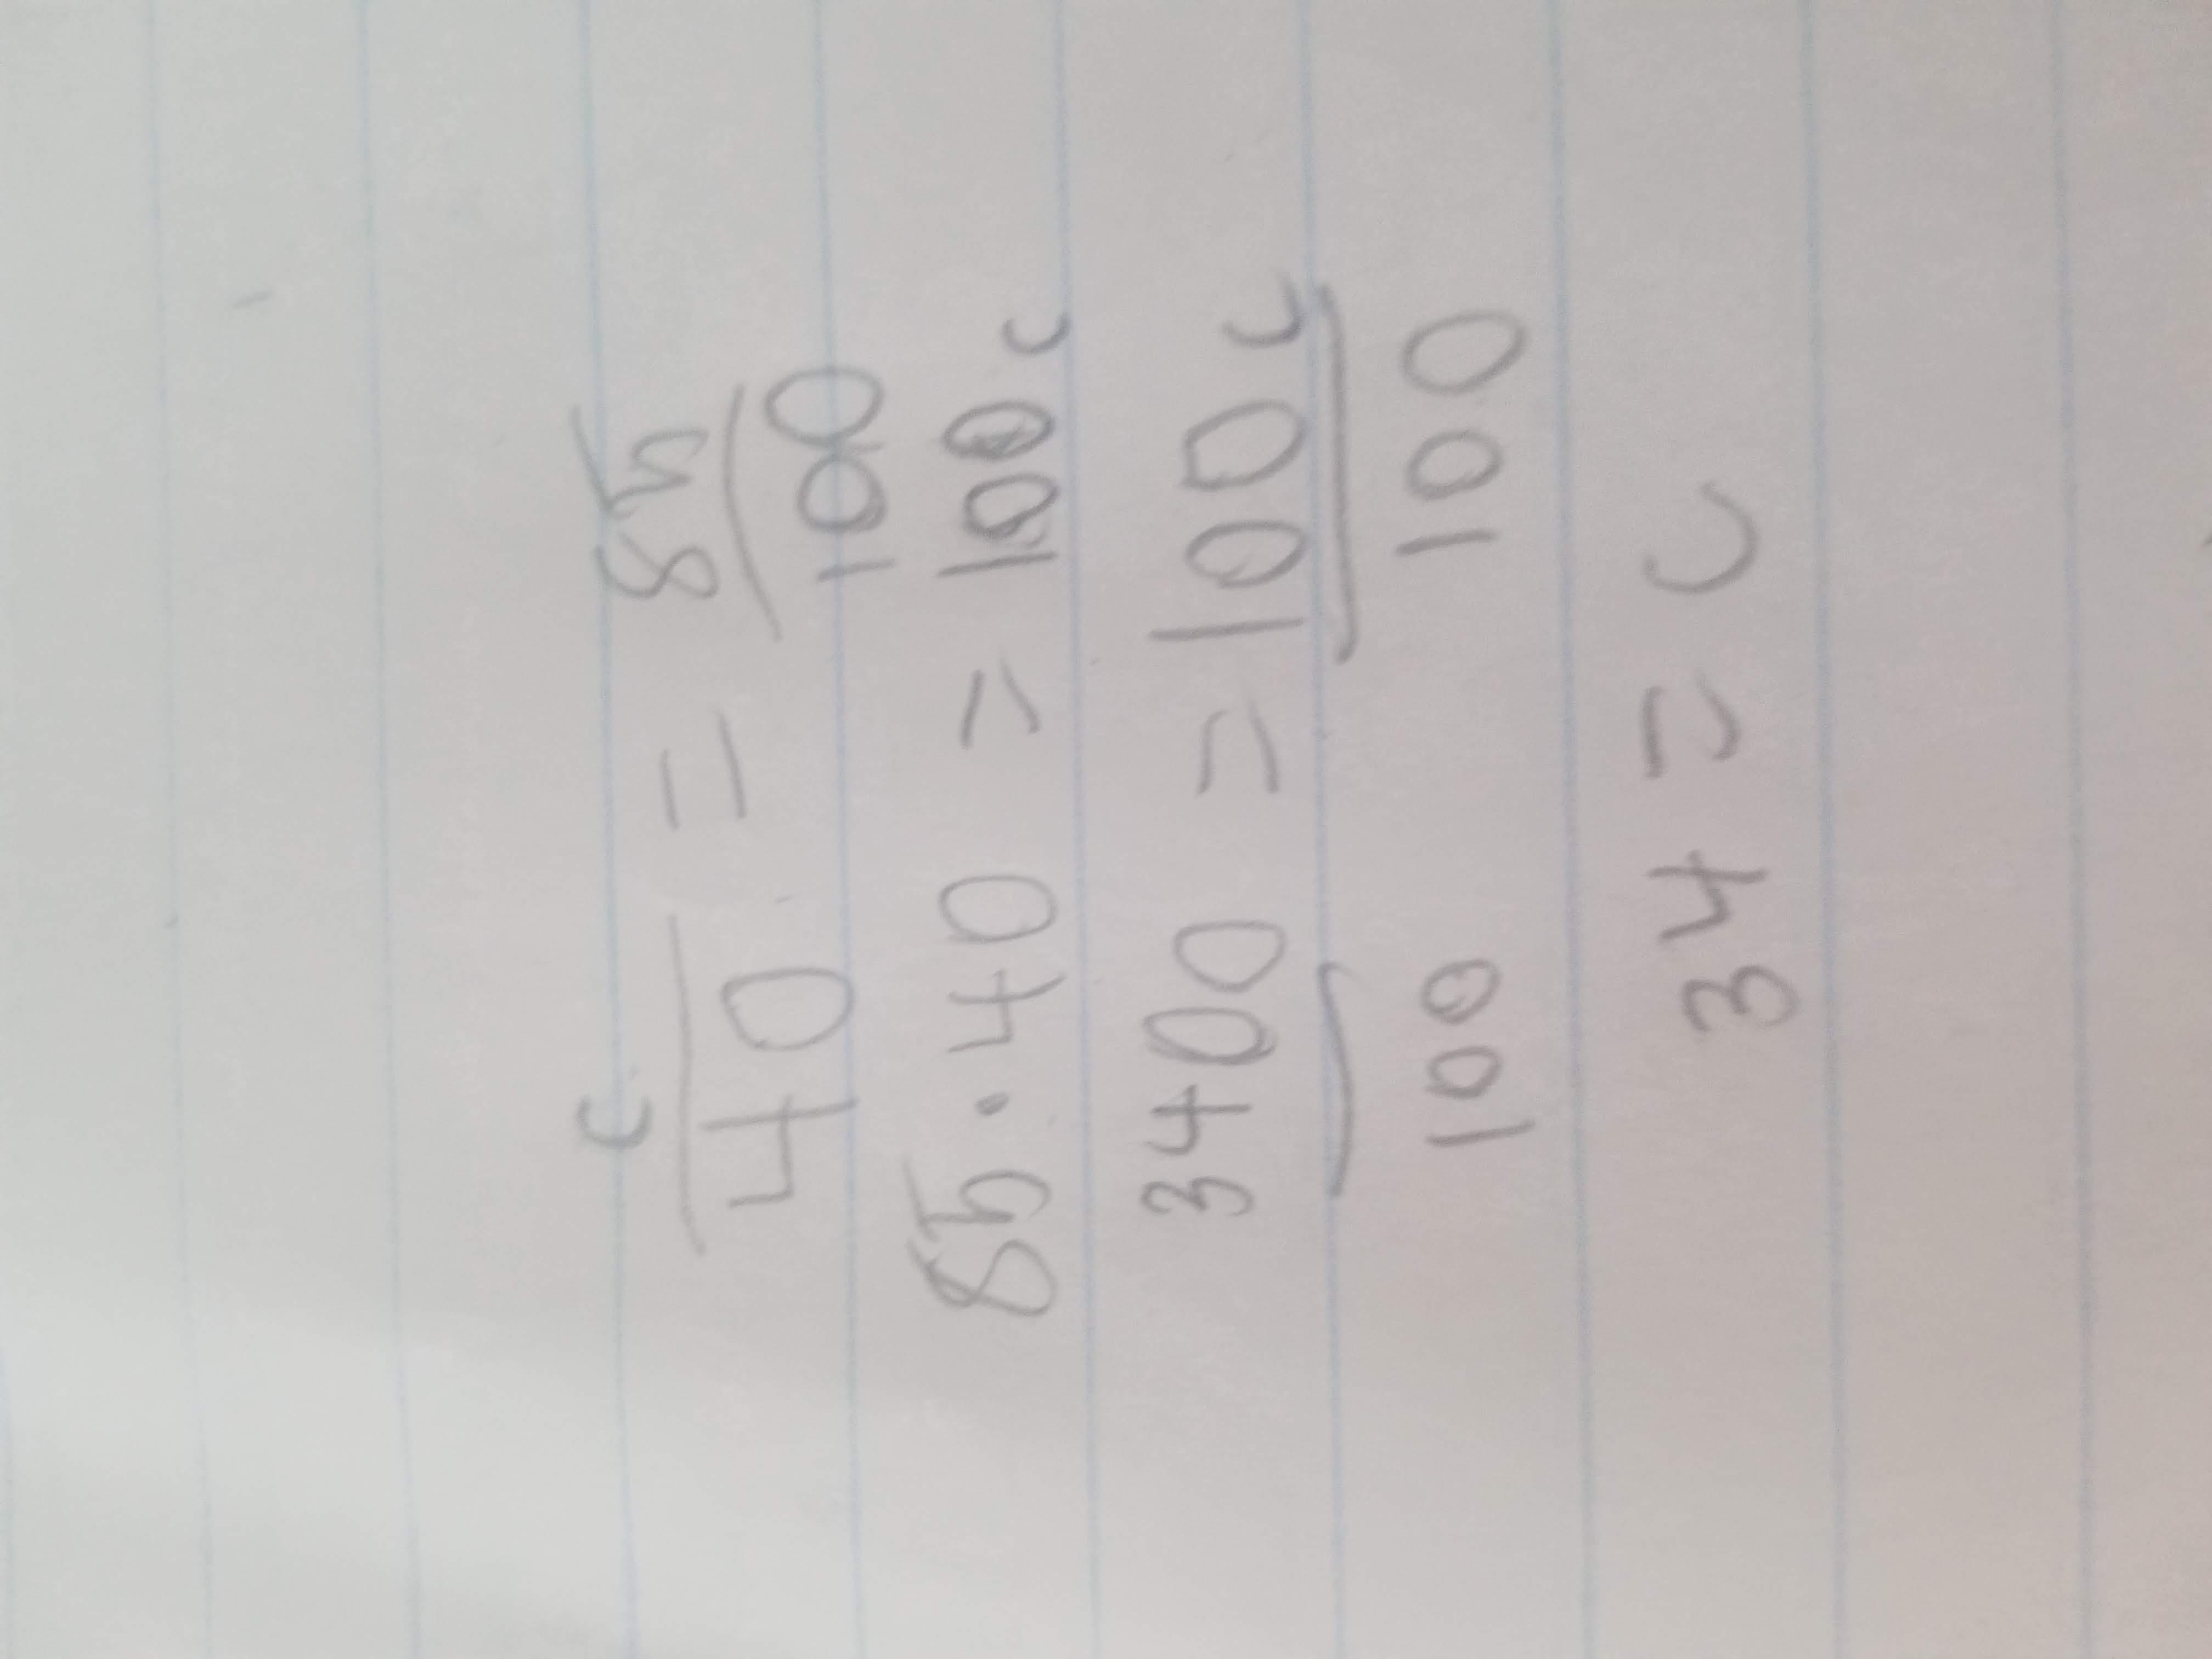 c/40 = 85/100
85 · 40 = 100c
3400 = 100c
100 100
34 = c